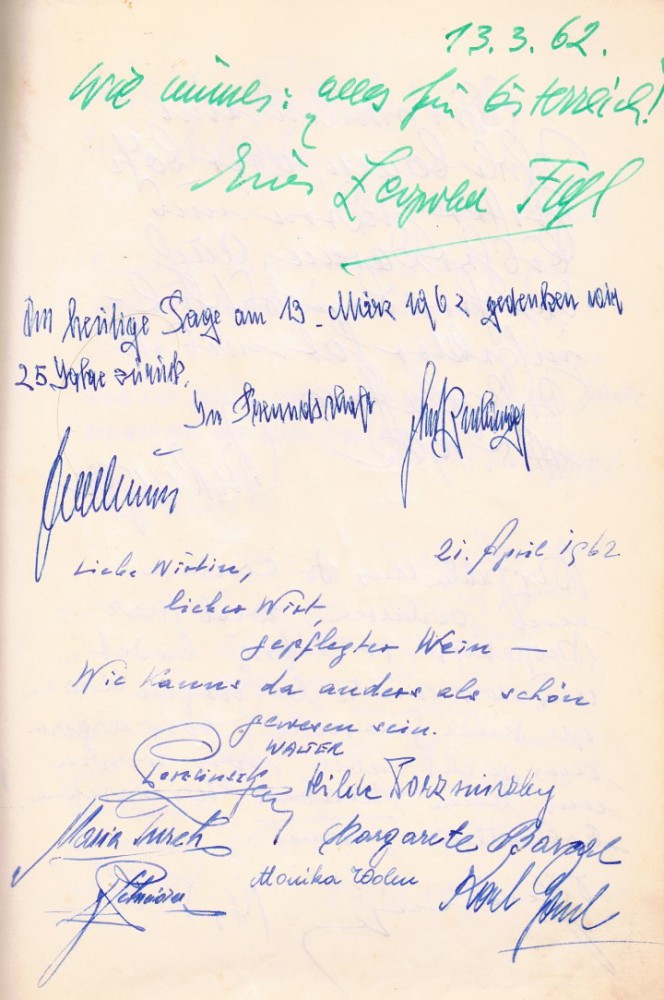 13.3.62.
Wie immer: alles für Österreich!
Leopold Figl
Am heutige Tage am 13. März 1962 gedenken wir
25 Jahre zurück.
In Freundschaft
21. April 1962
Liebe Wirtin,
lieber Wirt,
gepflegter Wein —
Wie kanns da anders als schön
gewesen sein.
WALTER
Hilde
Maria Turek Margarete
Monika
Karl